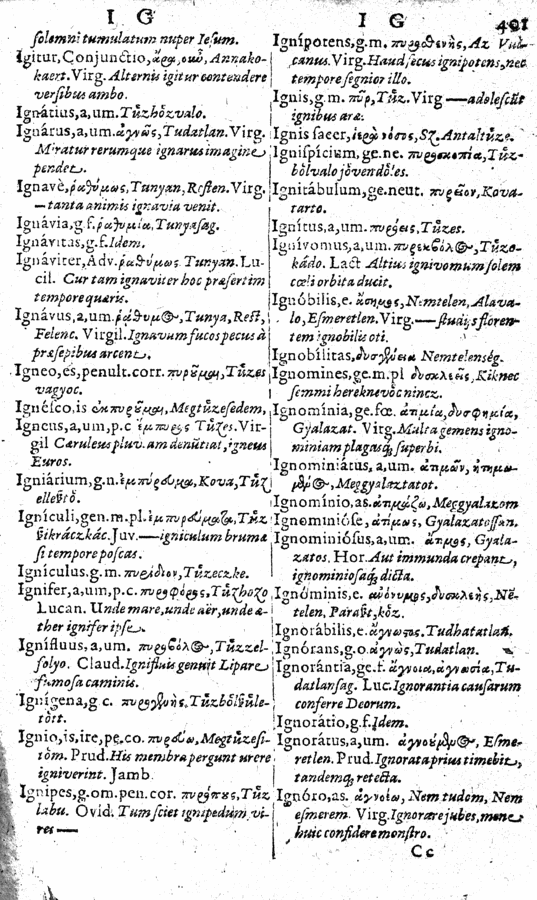 I G
I G
401
solemni tumulatum nuper Iesum.
Igitur, Conjunctio, ἄρα, οὖν, Annako-
kaert. Virg. Alternis igitur contendere
versibus ambo.
Ignátius, a, um. Tűzhözvalo.
Ignárus, a, um. ἀγνὼς, Tudatlan. Virg.
Miratur rerumque ignarus imagine
pendet.
Ignavè, ῥαθύμως, Tunyan, Resten. Virg.
— tanta animis ignavia venit.
Ignávia, g.f. ῥαθυμία, Tunyasag.
Ignávitas, g.f. Idem.
Ignáviter, Adv. ῥαθύμως. Tunyan. Lu-
cil. Cur tam ignaviter hoc præsertim
tempore quæris.
Ignávus, a, um. ῥάθυμος, Tunya, Rest,
Felenc. Virgil. Ignavum fucos pecus à
præsepibus arcent.
Igneo, es, penult. corr. πυροῦμαι, Tűzes
vagyoc.
Ignésco, is ἐκπυροῦμαι, Megtűzesedem,
Igneus, a, um, p.c ἔμπυρος Tűzes. Vir-
gil Cæruleus pluv. am denūtiat, igneus
Euros.
Igniárium, g.n. ἐμπύρευμα, Kova, Tűz
ellesítö.
Ignículi, gen. m. pl. ἐμπυρεύματα, Tűz
sikráczkác. Juv. — igniculum brumæ
si tempore poscas.
Ignículus, g.m. πυρίδιον, Tűzeczke.
Ignifer, a, um, p.c. πυρφόρος, Tűzhozo
Lucan. Unde mare, unde aër, unde æ-
ther ignifer ipse.
Ignífluus, a, um. πυρίβολος, Tűzzel-
folyo. Claud. Ignifluis genuit Lipare
fumosa caminis.
Ignígena, g c. πυριγενής. Tűzbölszüle-
tött.
Ignio, is, ire, pe. co. πυρεύω, Megtűzesi-
töm. Prud. His membra pergunt urere
igniverint. Jamb
Ignipes, g. om. pen. cor. πυρίπους, Tűz
labu. Ovid. Tum sciet ignipedum vi-
res —
Ignípotens, g.m. πυρισθενὴς, Az
canus. Virg. Haud secus ignipotens, nec
tempore segnior illo.
Ignis, g.m. πῦρ, Tűz. Virg — adolescūt
ignibus aræ.
Ignis sacer, ἱερὰ νόσος, Sz. Antaltűze.
Ignispícium, ge. ne. πυροσκοπία, Tűz-
bölvalo jövendöles.
Ignitábulum, ge. neut. πυρεῖον, Kova-
tarto.
Ignítus, a, um. πυρόεις, Tűzes.
Ignívomus, a, um. Tűzo-
kádo. Lact Altius ignivomum solem
cœli orbita ducit.
Ignóbilis, e. ἄσημος, Nemtelen, Alava-
lo, Esmeretlen. Virg. — studijs floren-
tem ignobilis oti.
Ignobílitas, δυσγένεια Nemtelenség.
Ignomines, ge. m. pl δυσκλεεῖς, Kiknec
semmi hereknevöc nincz.
Ignomínia, ge. fœ. ἀτιμία, δυσφημία,
Gyalazat. Virg. Multa gemens igno-
miniam plagasq; superbi.
Ignominiátus, a, um. ἀτιμῶν, ἠτιμω-
μένος, Meggyalaztatot.
Ignomínio, as. ἀτιμάζω, Meggyalazom
Ignominióse, ἀτίμως, Gyalazatossan.
Ignominiósus, a, um. ἄτιμος, Gyala-
zatos. Hor. Aut immunda crepant,
ignominiosaq; dicta.
Ignóminis, e. ἀνόνυμος, δυσκλεὴς, Né-
telen, Paraszt, köz.
Ignorábilis, e. ἄγνωτος. Tudhatatlan.
Ignórans, g.o. ἀγνὼς, Tudatlan.
Ignorántia, ge. f. ἄγνοια, ἀγνωσία, Tu-
datlansag. Luc. Ignorantia causarum
conferre Deorum.
Ignorátio, g.f. Idem.
Ignorátus, a, um. ἀγνοούμενος, Esme-
retlen. Prud. Ignorata prius timebit,
tandemq; retecta.
Ignóro, as. ἀγνοέω, Nem tudom, Nem
esmerem. Virg. Ignorare jubes, mene
huic confidere monstro.
Cc